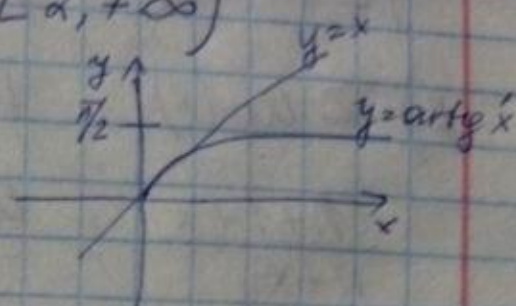 2, +∞)
y=x
y
π/2
y=artg x
x